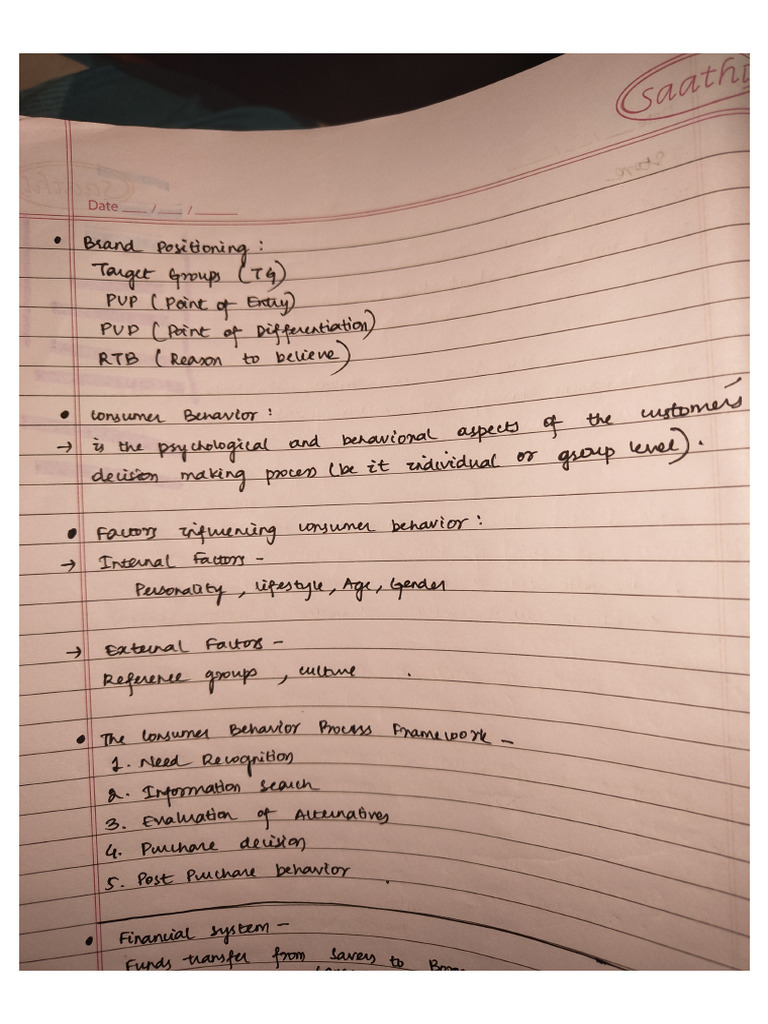 saathi
Date __/__/____
• Brand Positioning :
Target Groups (TG)
PVP (Point of Entry)
PVD (Point of Differentiation)
RTB (Reason to believe)
• Consumer Behavior :
→ is the psychological and behavional aspects of the customers
decision making process (be it individual or group level).
• Factors influencing consumer behavior :
→ Internal Factors -
Personality, lifestyle, Age, Gender
→ External Factors -
Reference groups, culture .
• The Consumer Behavior Process Framework -
1. Need Recognition
2. Information search
3. Evaluation of Alternatives
4. Purchase decision
5. Post Purchase behavior .
• Financial system -
Funds transfer from savers to